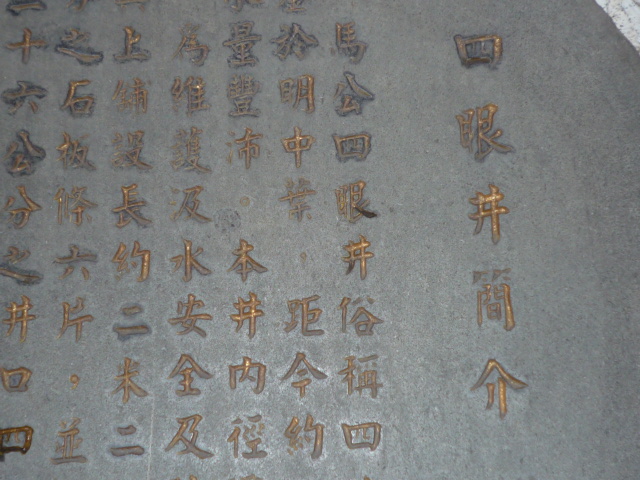 四眼井簡介
馬公四眼井俗稱四
於明中葉，距今約
量豐沛。本井內徑
為維護汲水安全及
上舖設長約二米二
之石板條六片。並
十六公分之井口四